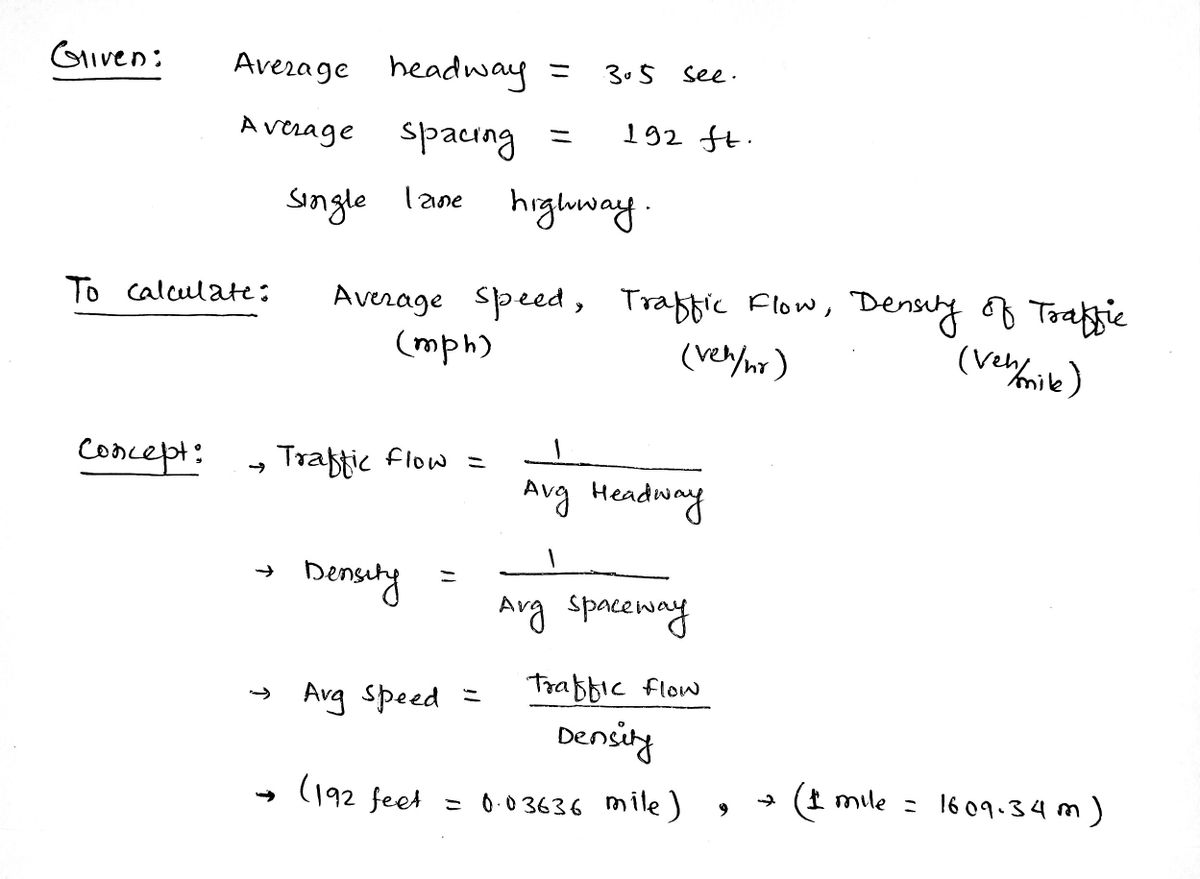 Given: Average headway = 3.5 sec.
Average spacing = 192 ft.
Single lane highway.
To calculate: Average speed, Traffic Flow, Density of Traffic
(mph) (veh/hr) (veh/mile)
Concept: → Traffic flow = 1 / Avg Headway
→ Density = 1 / Avg spaceway
→ Avg speed = Traffic flow / Density
→ (192 feet = 0.03636 mile) , → (1 mile = 1609.34 m)